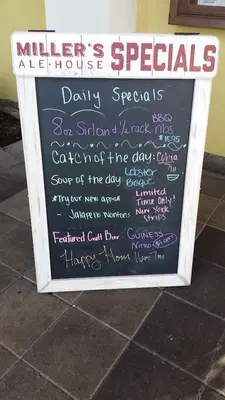 MILLER'S
ALE·HOUSE
SPECIALS
Daily Specials
8oz Sirloin & 1/2 rack BBQ ribs
$18.95
Catch of the day: Cobia
Soup of the day: Lobster Bisque
*Try our new app!
- Jalapeño Wontons
Limited
Time Only!
New York
Strips
Featured Craft Beer
GUINESS
Nitro
Happy Hour